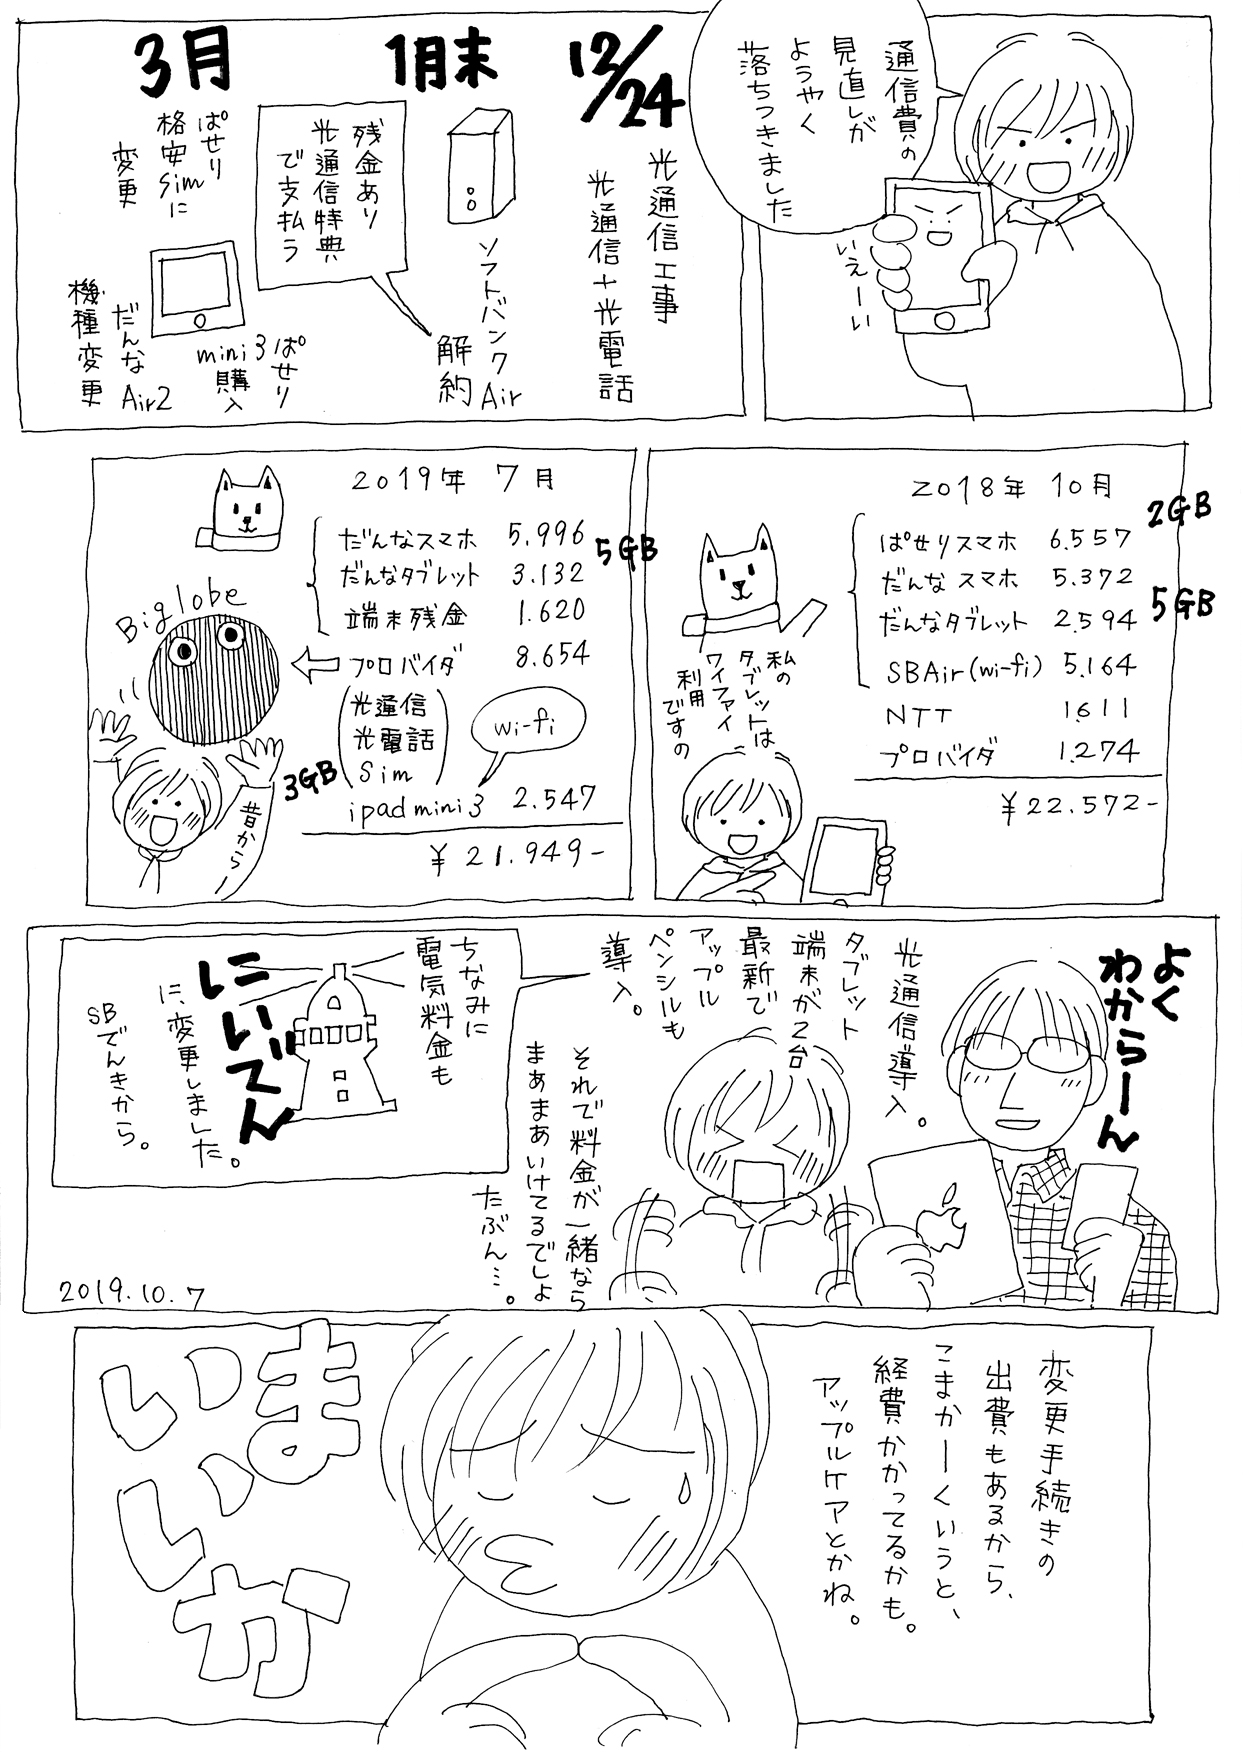 通信費の
見直しが
ようやく
落ちつきました
いえーい
12/24
光通信工事
光通信+光電話
1月末
ソフトバンク
Air
解約
残金あり
光通信特典
で支払う
3月
ぱせり
格安Simに
変更
ぱせり
mini3
購入
だんな
Air2
機種変更
2018年 10月
ぱせりスマホ 6.557
2GB
だんなスマホ 5.372
だんなタブレット 2.594
5GB
SBAir(wi-fi) 5.164
NTT 1.611
プロバイダ 1.274
¥22.572-
私の
タブレットは
ワイファイ
利用
ですの
2019年 7月
だんなスマホ 5.996
5GB
だんなタブレット 3.132
端末残金 1.620
プロバイダ 8.654
光通信
光電話
Sim
3GB
wi-fi
ipad mini3 2.547
¥21.949-
Biglobe
昔からー
よく
わからーん
光通信導入。
タブレット
端末が2台
最新で
アップル
ペンシルも
導入。
それで料金が一緒なら
まあまあいけてるでしょ
たぶん…。
ちなみに
電気料金も
にいでん
に、変更しました。
SBでんきから。
2019.10.7
変更手続きの
出費もあるから、
こまかーくいうと、
経費かかってるかも。
アップルケアとかね。
ま
いいか